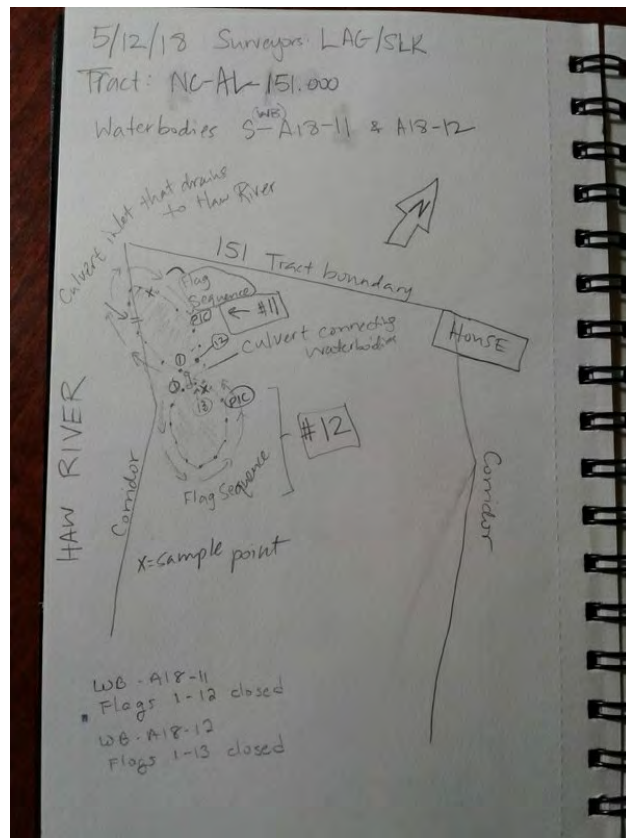 5/12/18 Surveyors: LAG/SLK
Tract: NC-AL-151.000
(WB)
Waterbodies S-A18-11 & A18-12
Culvert inlet that drains
to Haw River
N
151 Tract boundary
Flag
Sequence
PIC
← #11
12
Culvert connecting
waterbodies
HOUSE
1
x
1
x
13
PIC
#12
Flag Sequence
HAW RIVER
Corridor
Corridor
x=sample point
WB-A18-11
Flags 1-12 closed
WB-A18-12
Flags 1-13 closed